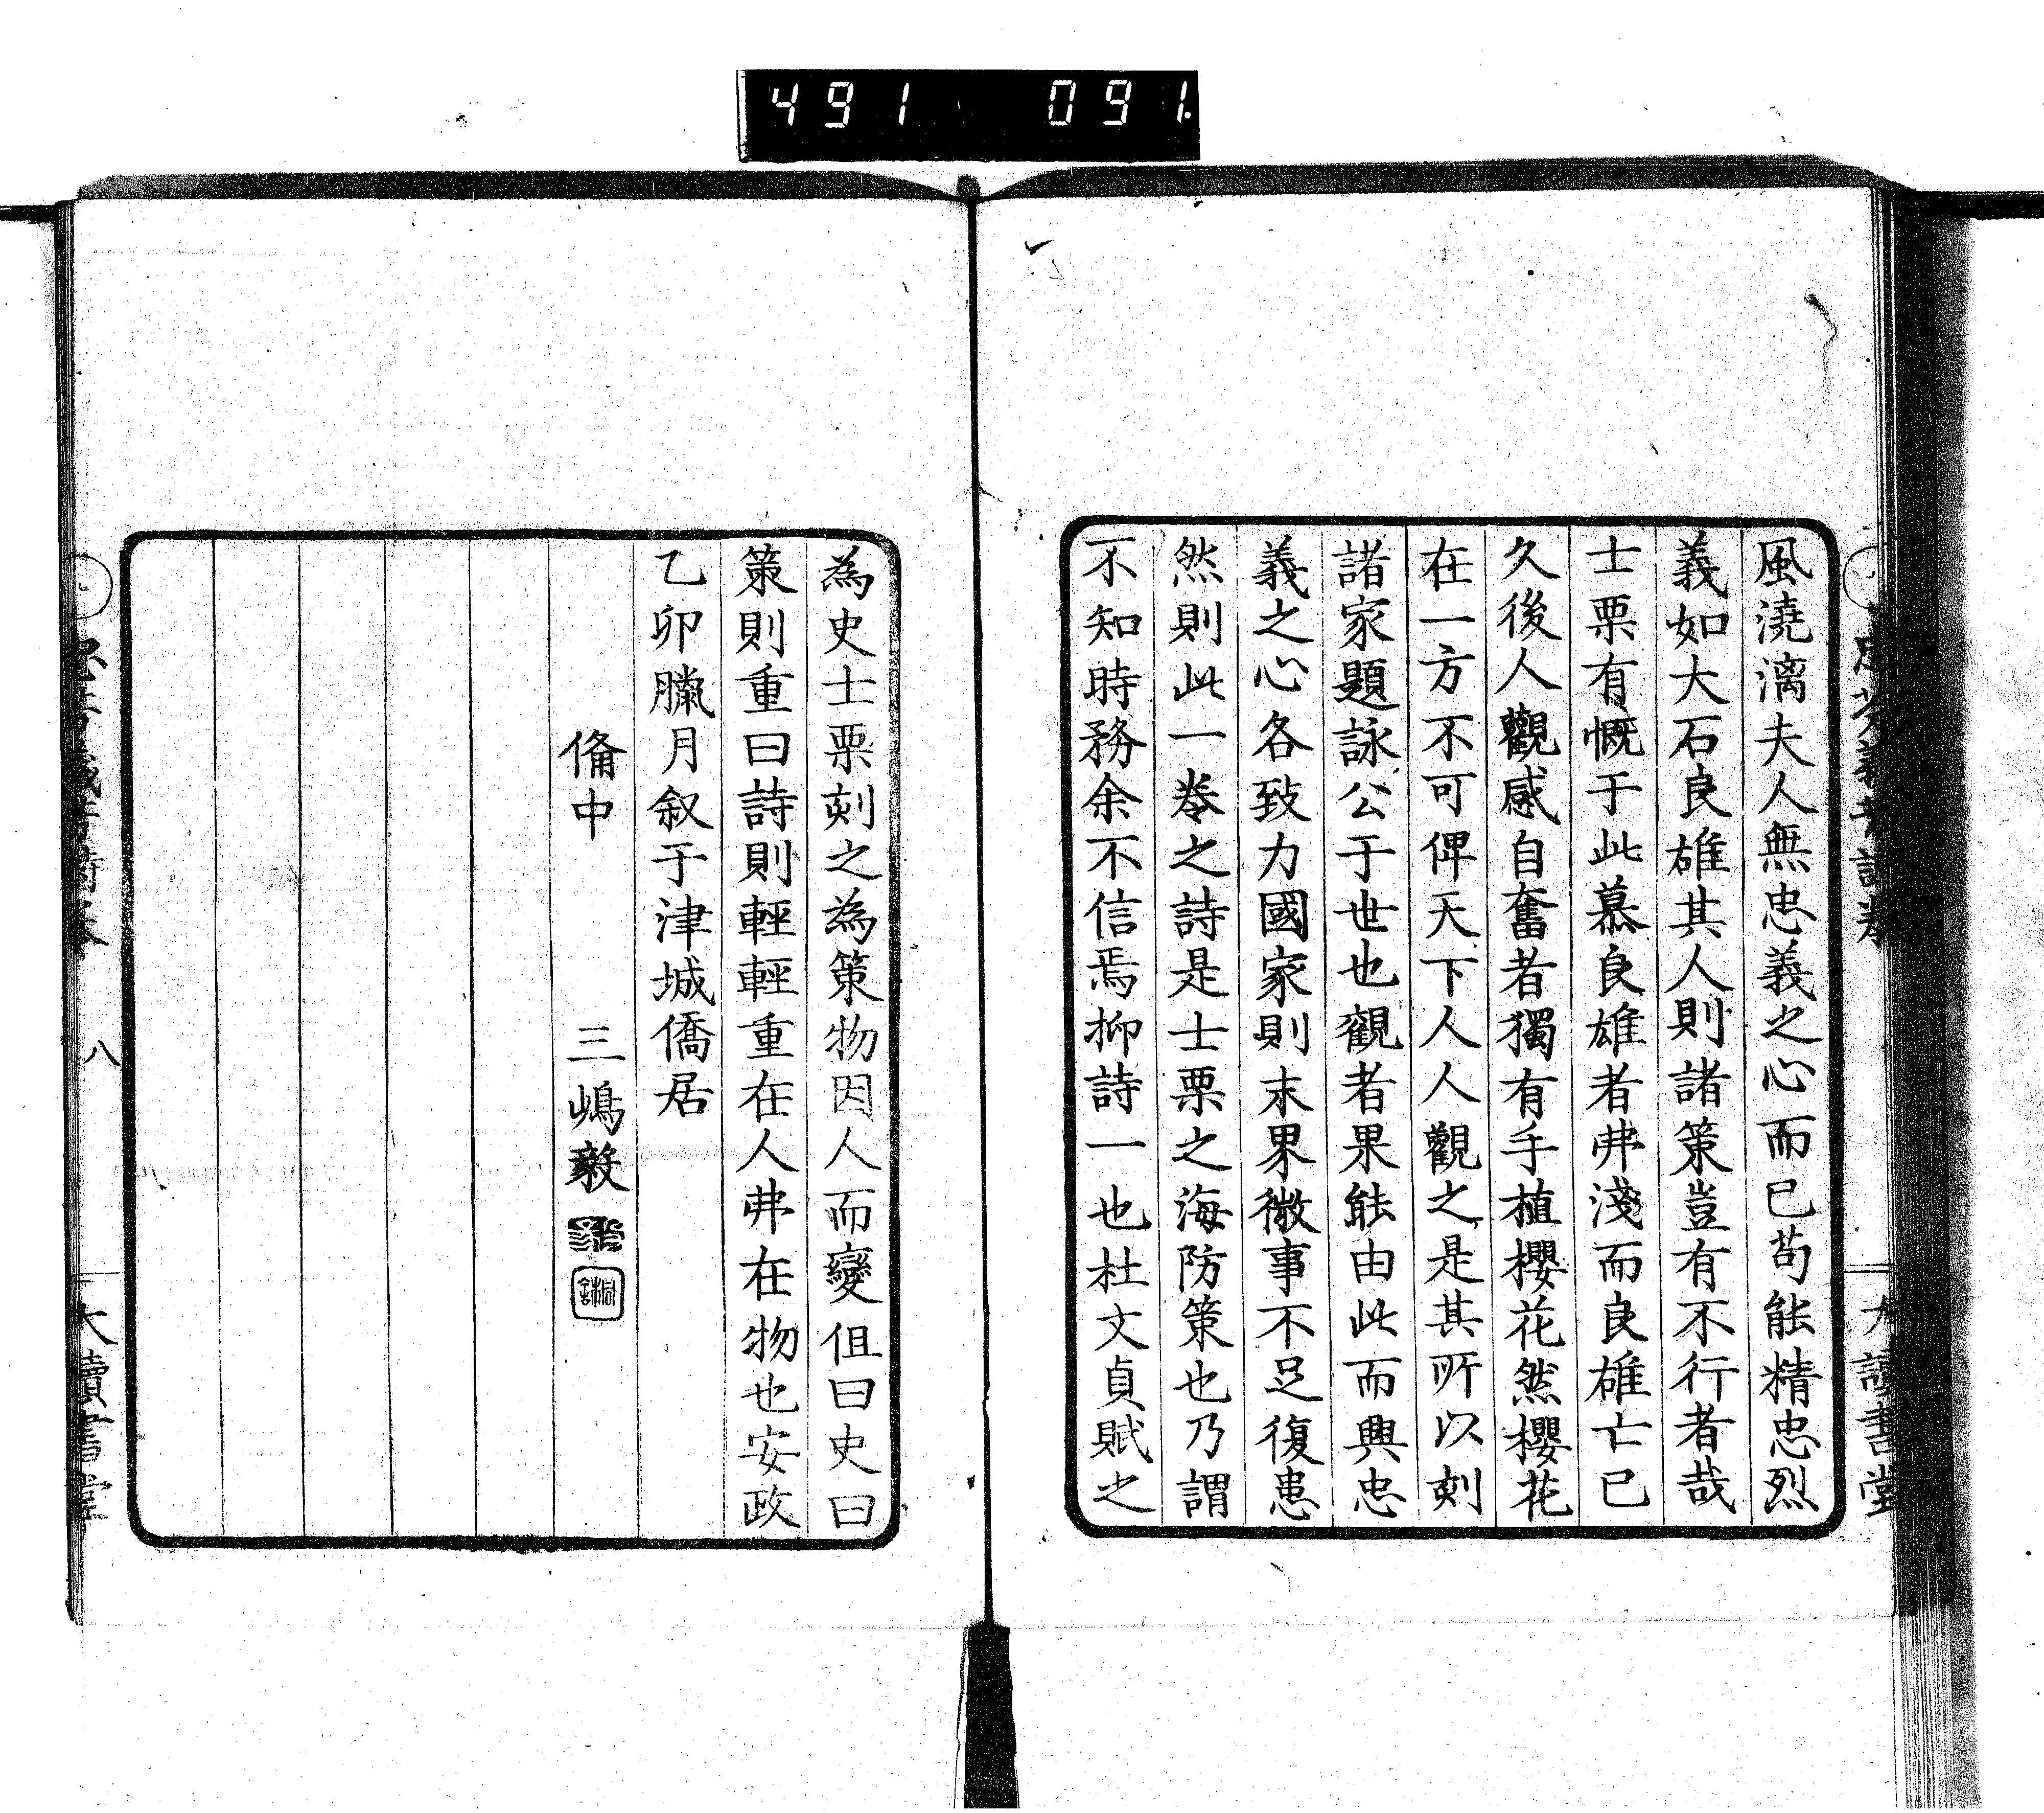 491 091
風澆漓夫人無忠義之心而已苟能精忠烈
義如大石良雄其人則諸策豈有不行者哉
士栗有慨于此慕良雄者弗淺而良雄亡已
久後人觀感自奮者獨有手植櫻花然櫻花
在一方不可俾天下人人觀之是其所以刻
諸家題詠公于世也觀者果能由此而興忠
義之心各致力國家則末界微事不足復患
然則此一卷之詩是士栗之海防策也乃謂
不知時務余不信焉抑詩一也杜文貞賦之
為史士栗刻之為策物因人而變但曰史曰
策則重曰詩則輕輕重在人弗在物也安政
乙卯臘月叙于津城僑居
備中 三嶋毅
八
大讀書堂